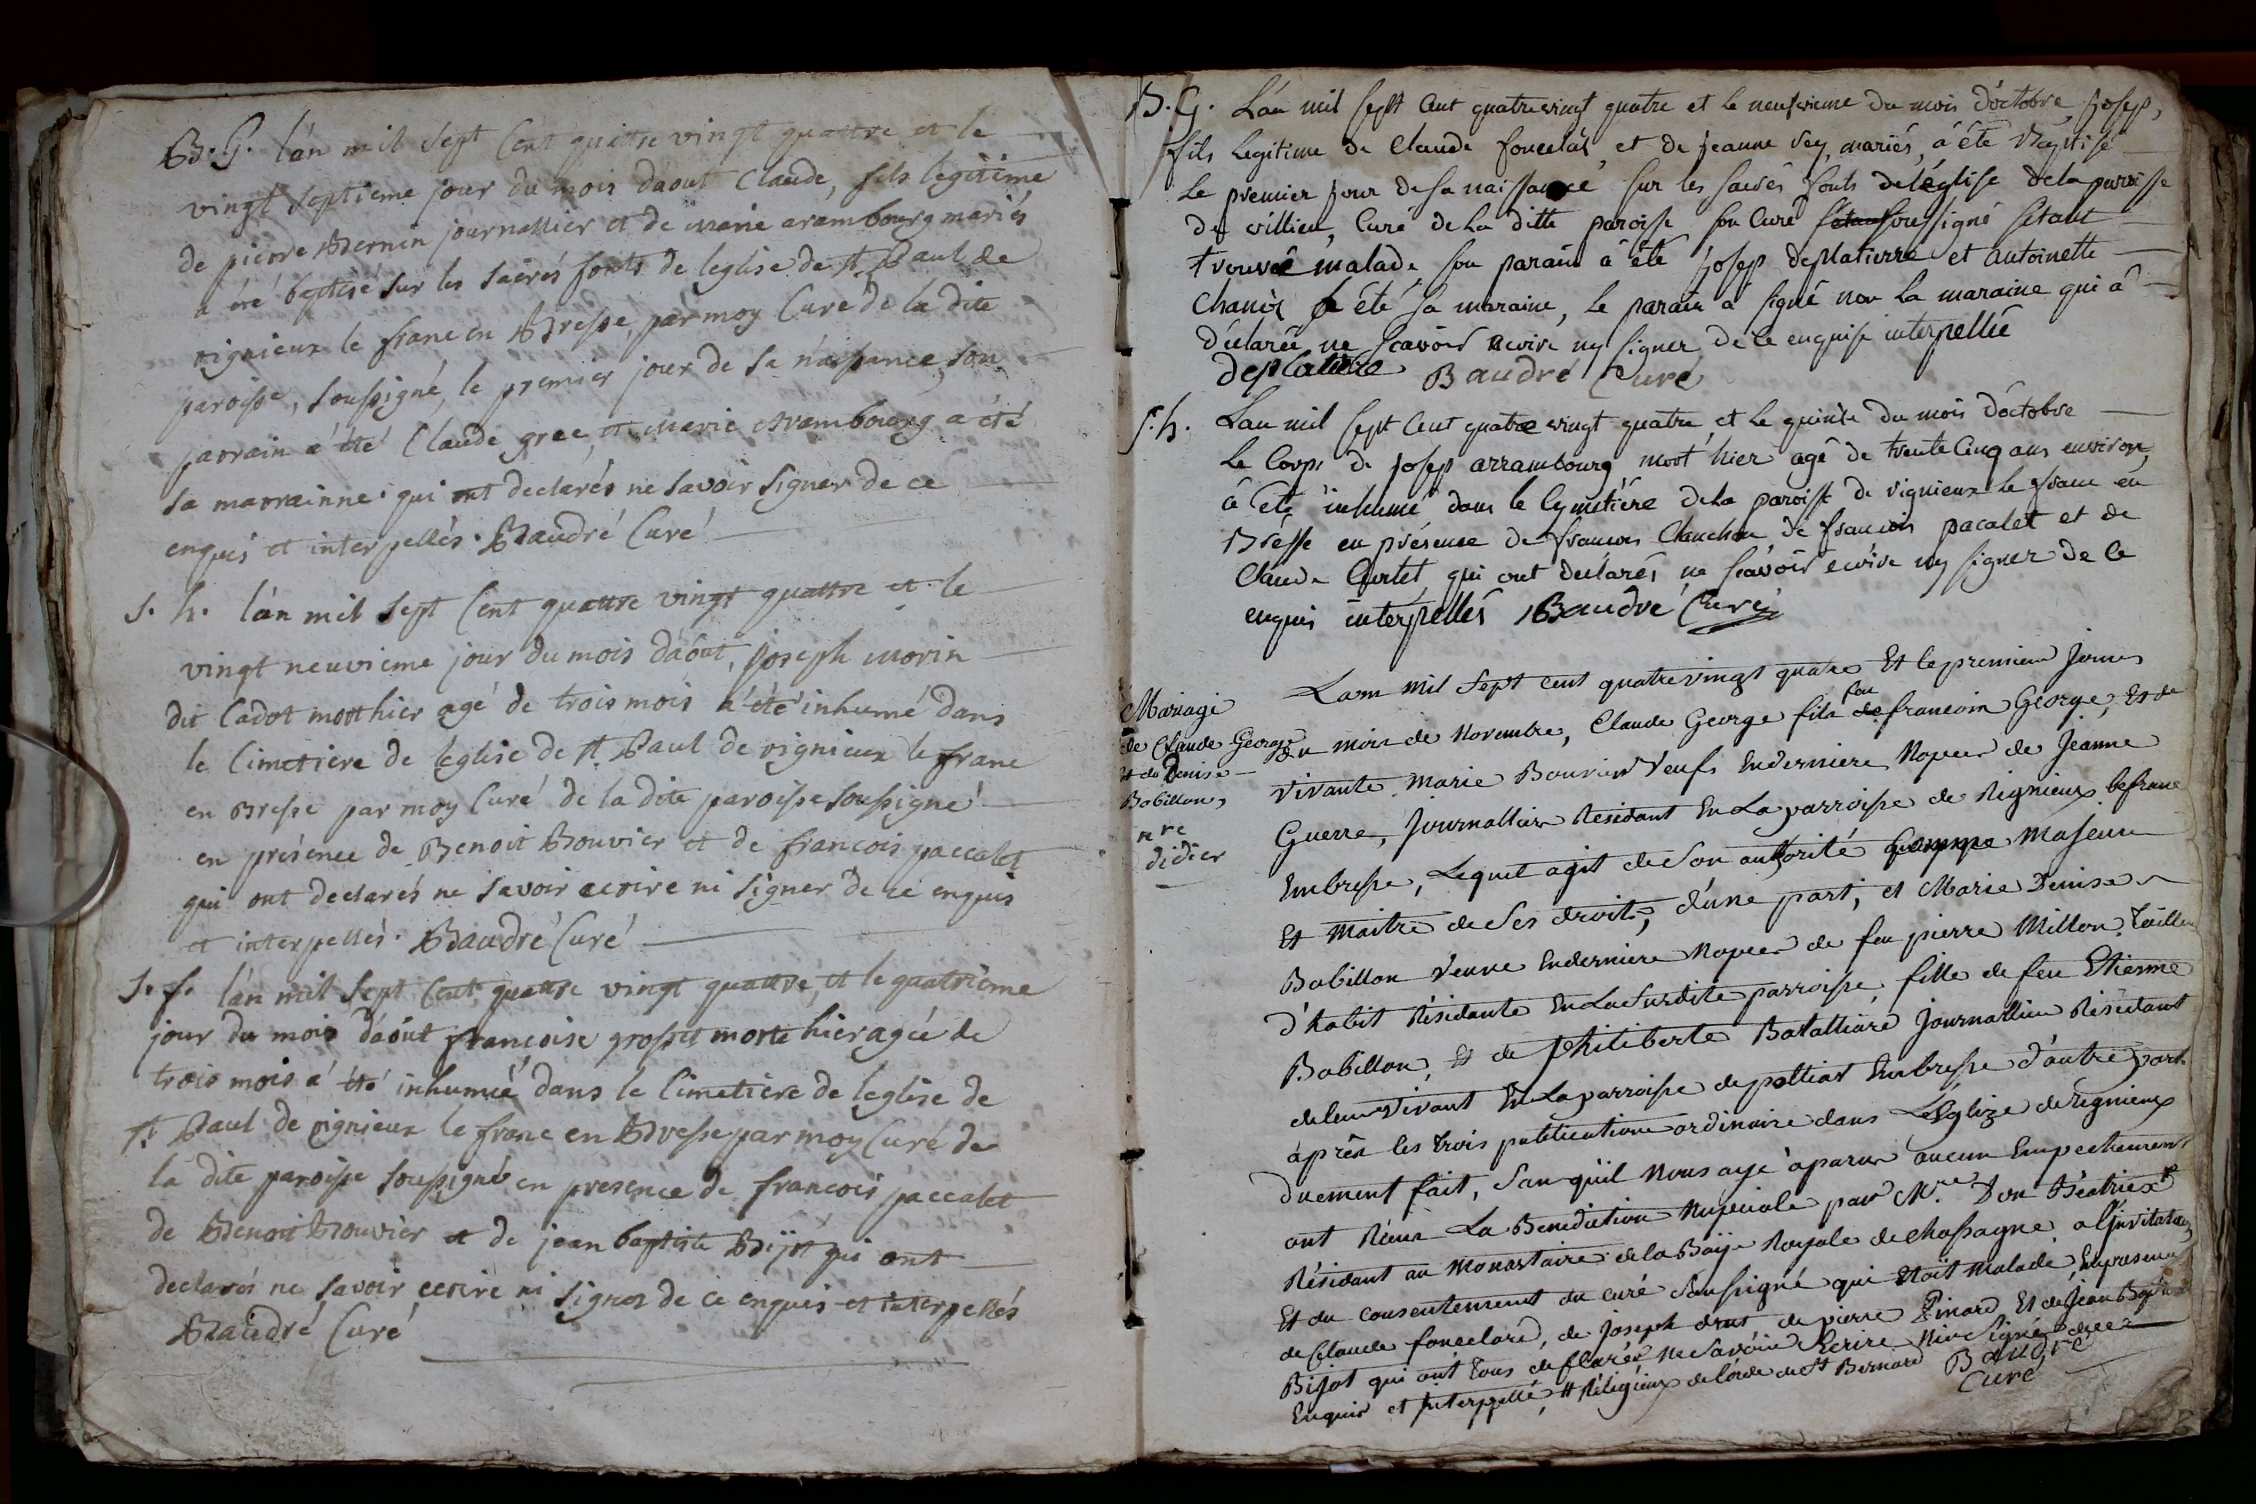 B. G. l'án mil sept Cent quattre vingt quattre et le
vingt septieme jour du mois daout Claude, fils legitime
de pierre Bernin journallier et de marie arámbourg mariés
a été baptisé sur les sacrés fonts de leglise de st. Paul de
rignieux le franc en Bresse, par moy Curé de la dite
paroisse, soussigné, le premier jour de sa naissance, son
parrain a été Claude gree, et marie Arambourg a été
sa marrainne. qui ont declarés ne savoir signer de ce
enquis et interpellés. Baudré Curé
S. h. l'án mil sept Cent quattre vingt quattre et le
vingt neuvieme jour du mois daóut, joseph morin
dit Cadot mort hier agé de trois mois a été inhumé dans
le Cimetiere de leglise de st. Paul de rignieux le franc
en Bresse par moy Curé de la dite paroisse soussigné
en présence de Benoit Bouvier et de francois paccalet
qui ont declarés ne savoir ecrire ni signer de ce enquis
et interpellés. Baudré Curé
S. f. l'án mil sept Cent quattre vingt quattre, et le quatrieme
jour du mois daóut françoise grosset morte hier agée de
trois mois a été inhumée dans le Cimetiere de leglise de
st. Paul de rignieux le franc en Bresse par moy Curé de
la dite paroisse soussigné en presence de francois paccalet
de Benoit Bouvier et de jean baptiste Bijot qui ont
declarés ne savoir ecrire ni signer de ce enquis et interpellés
Baudré Curé
B. G. L'án mil sept Cent quatrevingt quatre et le neufvieme du mois d'octobre josep,
fils legitime de Claude foncelas, et de jeanne sey, mariés, a été Baptisé
le premier jour de sa naissance sur les sacrés fonts de léglise de la paroisse
de villieu, Curé de La ditte paroisse son Curé soussigné s'etant
trouvé malade son parain a été josep deplatierre et antoinette
Chanel a été sa maraine, le parain a signé non la maraine qui a
déclarée ne scavoir ecrire ny signer de ce enquise interpellée
deplatiere Baudré Curé
S. h. L'an mil sept Cent quatre vingt quatre, et le quinze du mois d'octobre
le Corps de josep arrambourg mort hier agé de trente Cinq ans environ,
a été inhumé dans le Cymetiére de La paroisse de rignieux le franc en
Bresse en présence de francois Clauchon, de francois pacalet et de
Claude Curtet qui ont déclarés ne scavoir ecrire ny signer de Ce
enquis interpellés Baudré Curé
Mariage
de Claude George
et de Denise
Babillon,
nre
didier
Lan mil Sept cent quatrevingt quatre Et le premier Jour
du mois de Novembre, Claude George fils feu francoin George, Et de
vivante Marie Bouvier Veufs Enderniere Nopces de Jeanne
Guerre, Journallier Résidant En La parroisse de Rignieux lefranc
Enbresse, Lequel agit de Son authorité Comme Majeur
Et Maitre de Ses droits, d'une part, et Marie Denise
Babillon Veuve Enderniere Nopces de feu pierre Millon Tailleur
d'habit Résidante En La Susdite parroisse, fille de feu Etienne
Babillon, Et de philiberte Batalliard Journallier Résidant
de leur Vivant En La parroisse de polliat Enbresse d'autre part
après les trois publications ordinaire dans LEglize de rignieux
duement fait, San quil Nous aye aparue aucun Empechement
ont Récu La Benediction Nupciale par Mre. Don Béatrix #
Résidant au Monastaire de la Baije Royale de chassagne a l'invitation
Et du consentement du curé Soussigné qui Etoit Malade, En presence
de Claude foncelard, de Joseph drut de pierre Pinard Et de Jean Baptiste
Bijot qui ont tous desclarés Ne Savoir Ecrire Nin Signé de ce
Enquis et Interpellé, # Réligieux de lórde de St Bernard Baudré
Curé